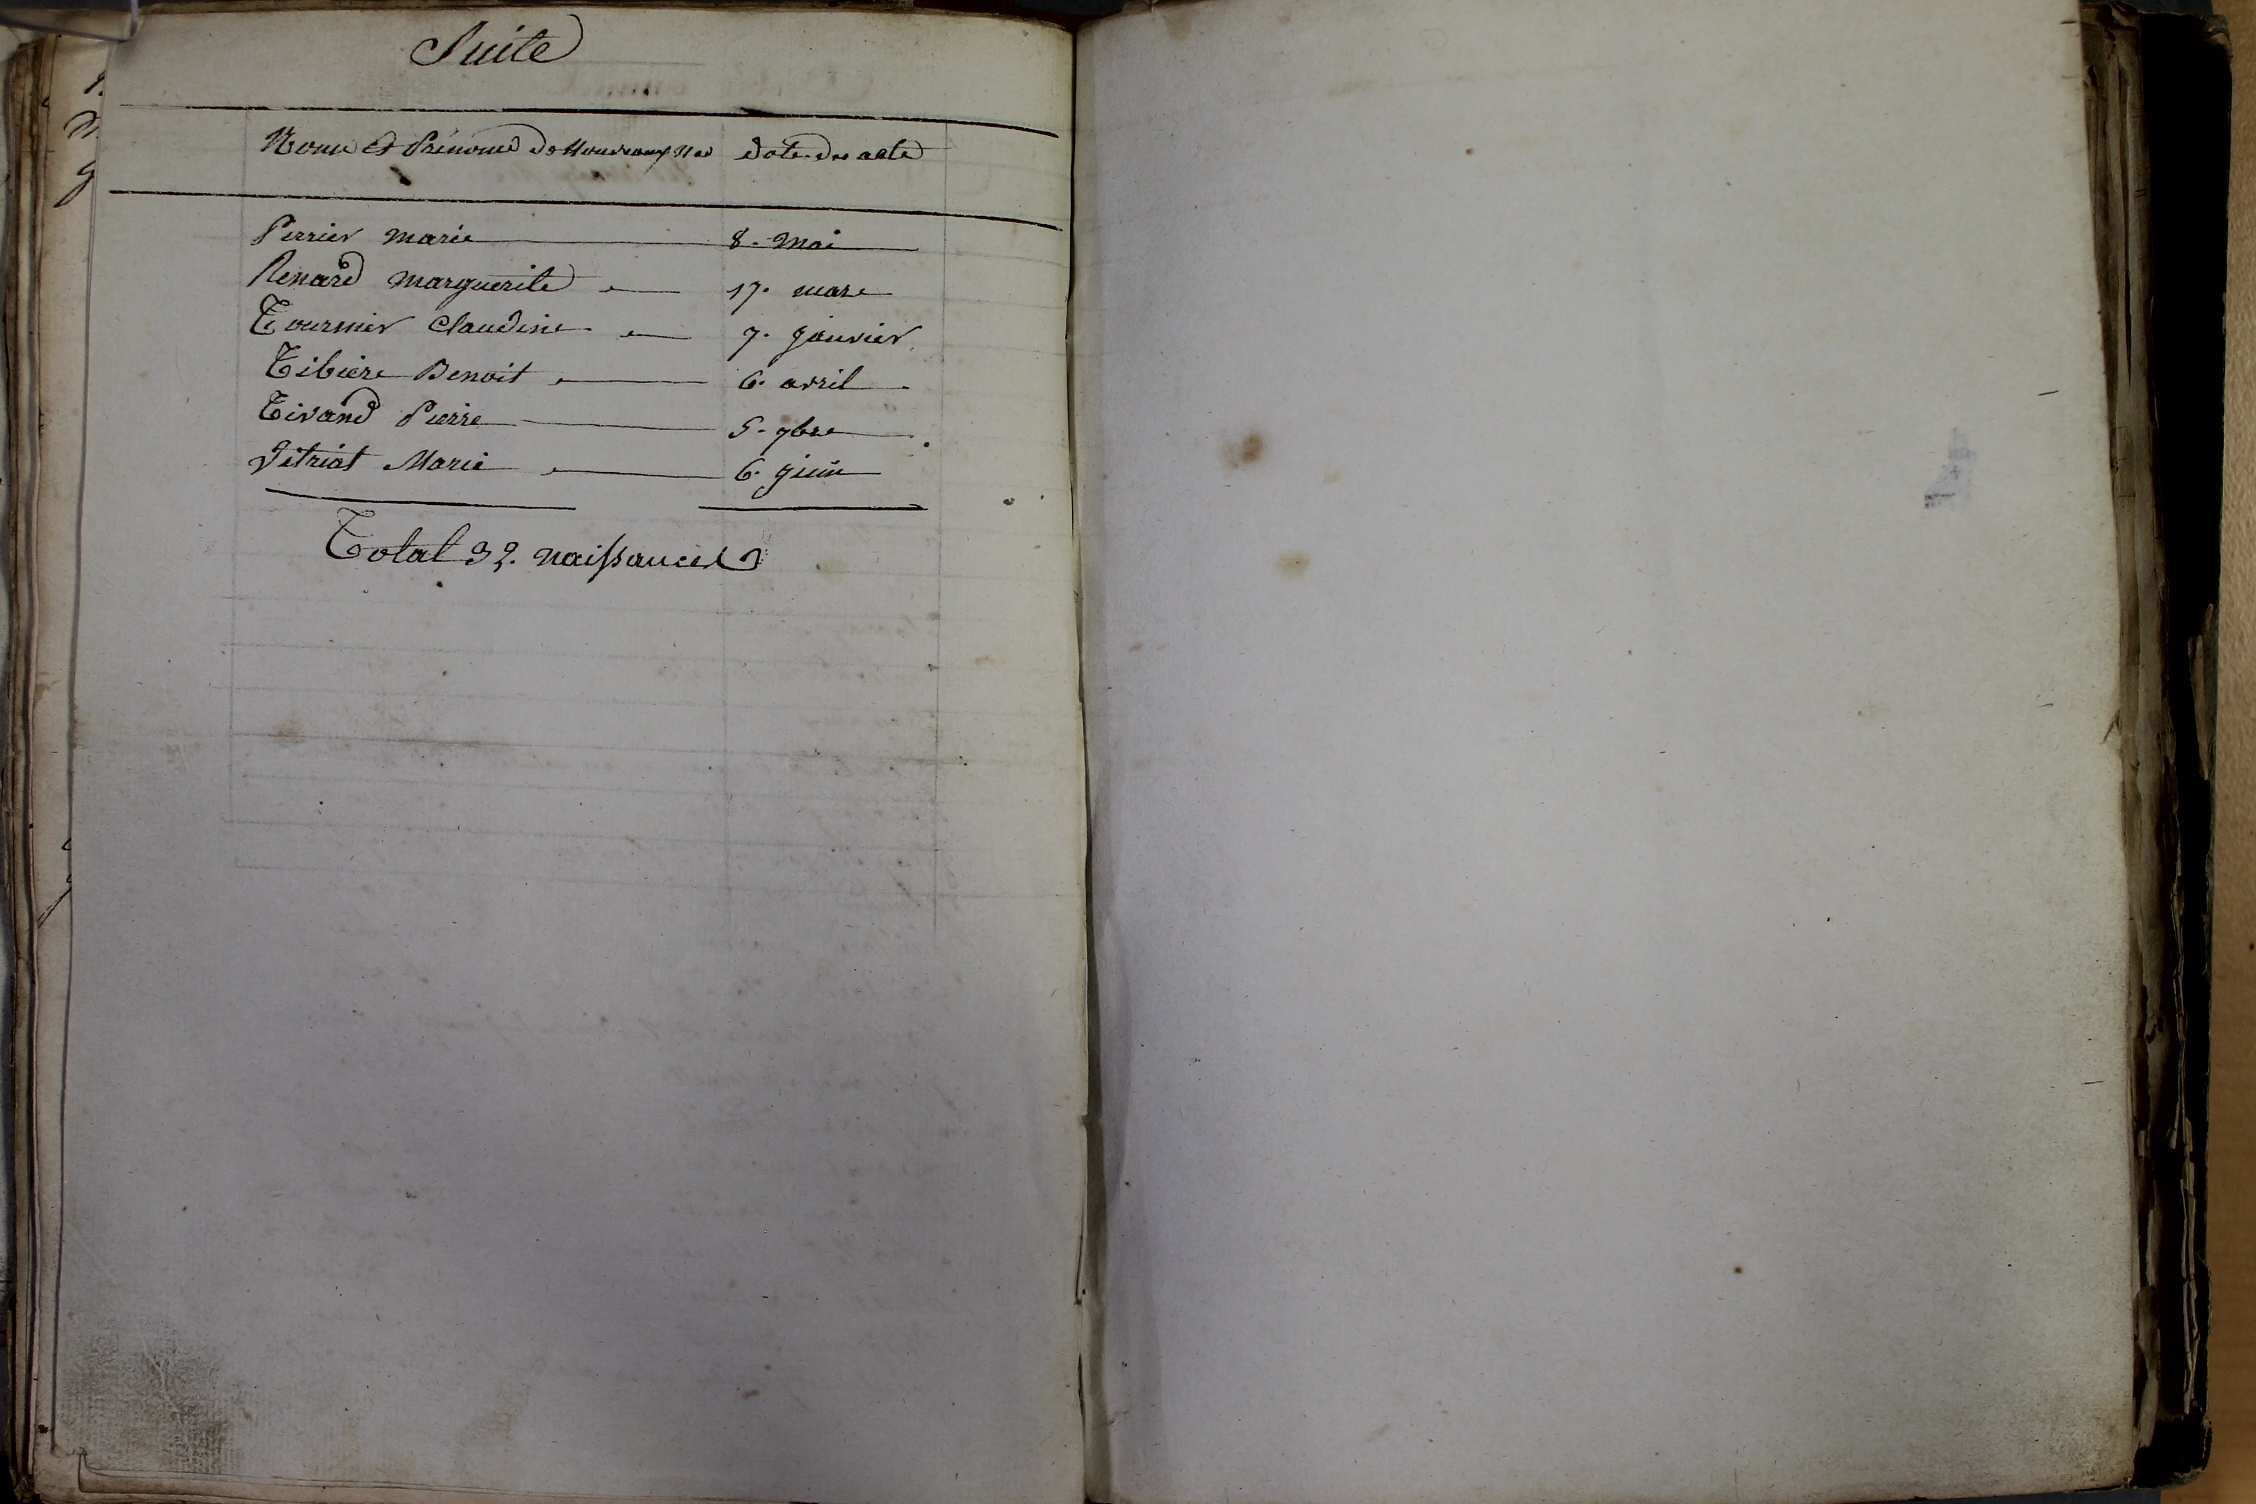 Suite
Noms et Prénoms des Nouveaux Nés date des acte
Perrier Marie 8. Mai
Renard Marguerite 17. mars
Tournier Claudine 7. janvier
Tibiere Benoit 6. avril
Tivand Pierre 5. 9bre
Vitriat Marie 6. juin
Total 32. naissances